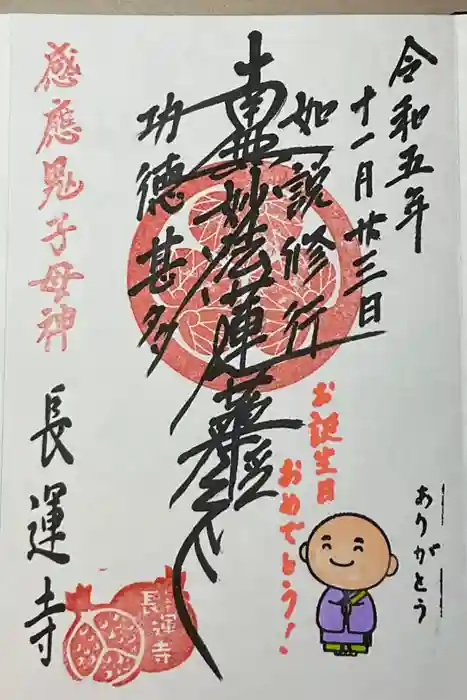 令和五年
十一月廿三日
如説修行
南無妙法蓮華経
功徳甚多
感應鬼子母神
長運寺
お誕生日
おめでとう!
ありがとう
長運寺